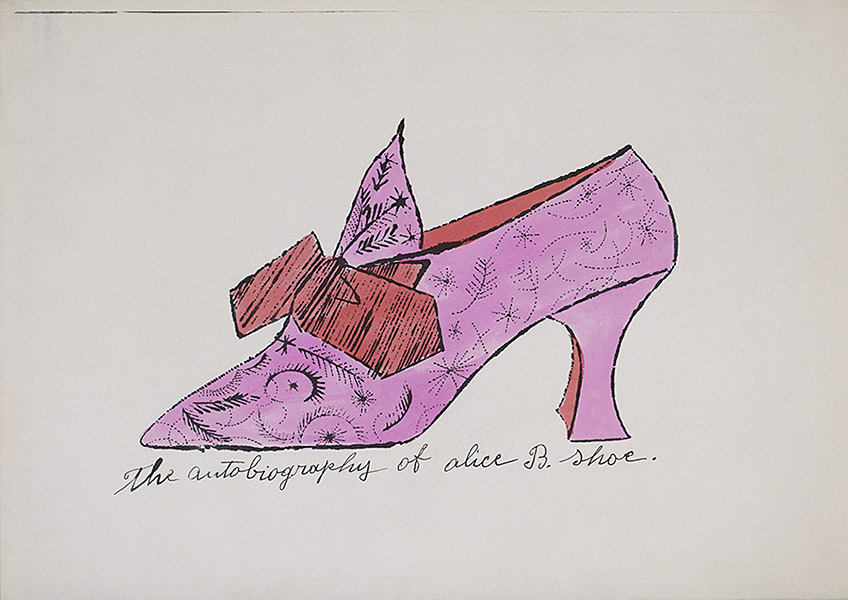 The autobiography of alice B. shoe.